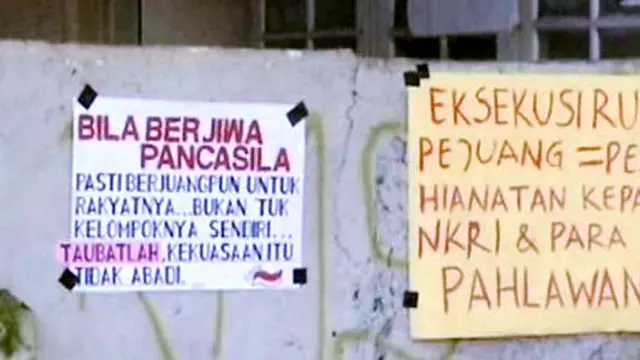 BILA BERJIWA
PANCASILA
PASTI BERJUANGPUN UNTUK
RAKYATNYA... BUKAN TUK
KELOMPOKNYA SENDIRI...
TAUBATLAH, KEKUASAAN ITU
TIDAK ABADI...
EKSEKUSI RU
PEJUANG = PE
HIANATAN KEPA
NKRI & PARA
PAHLAWAN